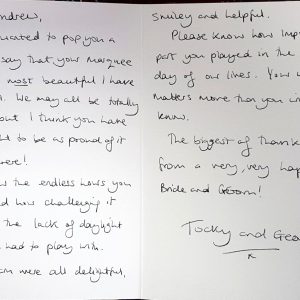 ndrew,
ucated to pop you a
say that your marquee
most beautiful I have
. We may all be totally
out I think you have
ht to be as proud of it
were!
w the endless hours you
d how challenging it
the lack of daylight
had to play with.
am were all delightful,
smiley and helpful.
Please know how imp
part you played in the
day of our lives. Your w
matters more than you c
know.
The biggest of thank
from a very, very hap
Bride and Groom!
Tocky and Geo
x